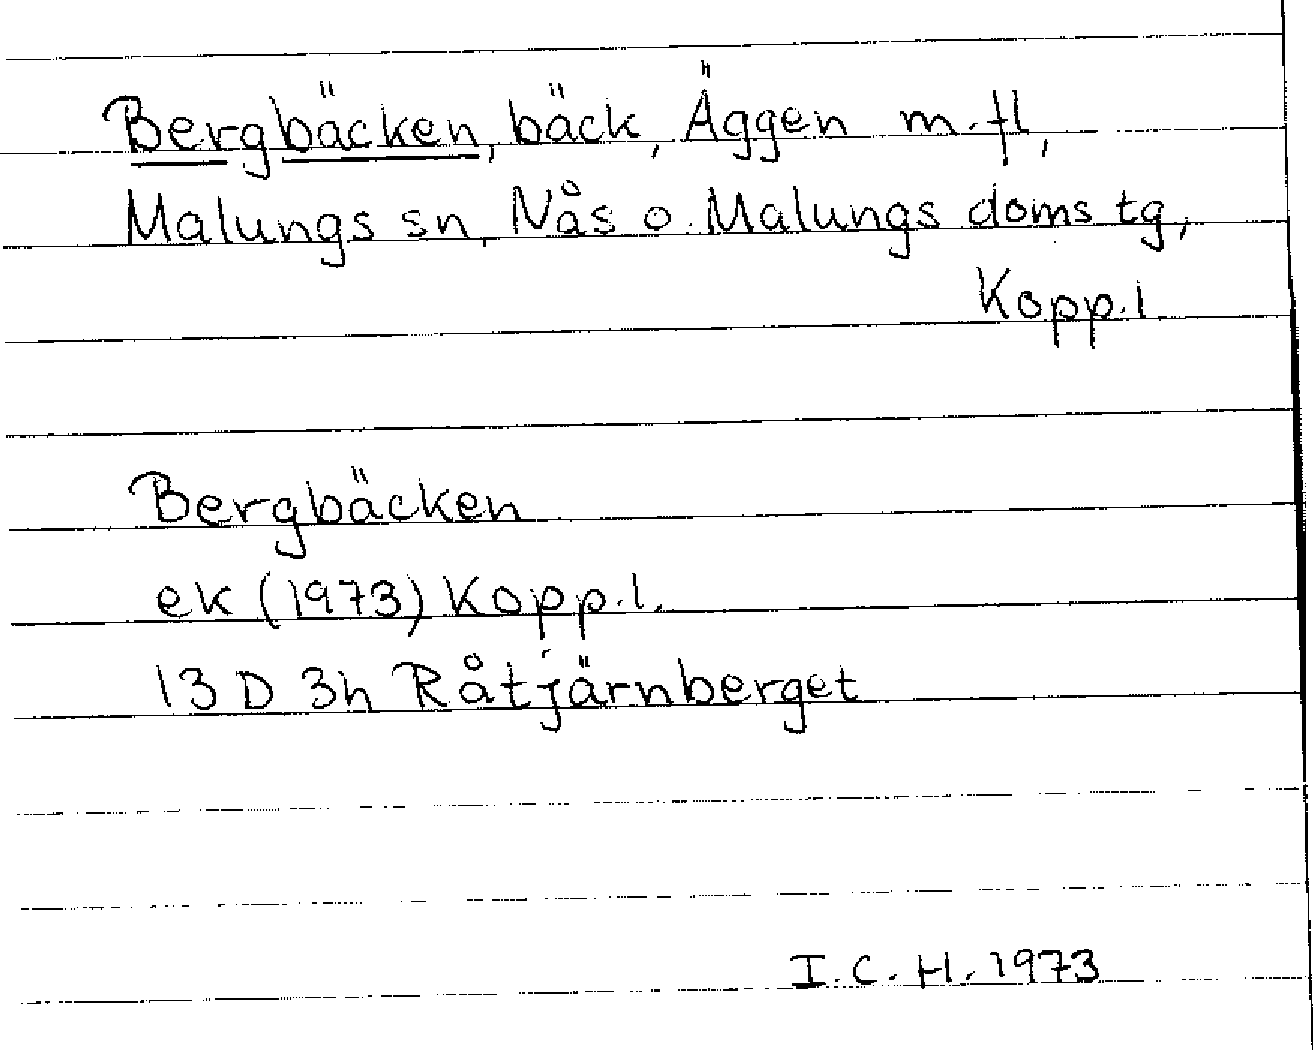 Bergbäcken, bäck, Äggen m.fl,
Malungs sn, Nås o. Malungs doms tg,
Kopp.l
Bergbäcken
ek (1973) Kopp.l.
13 D 3h Råtjärnberget
I.C.H. 1973